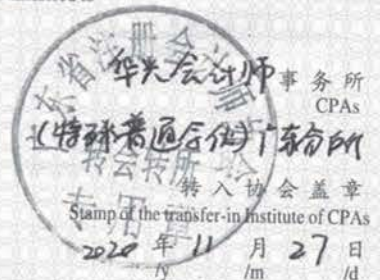 华兴会计师事务所
CPAs
(特殊普通合伙)广东分所
东省注册会计师协会
转会转所
专用章
转入协会盖章
Stamp of the transfer-in Institute of CPAs
2020 年 11 月 27 日
/y /m /d